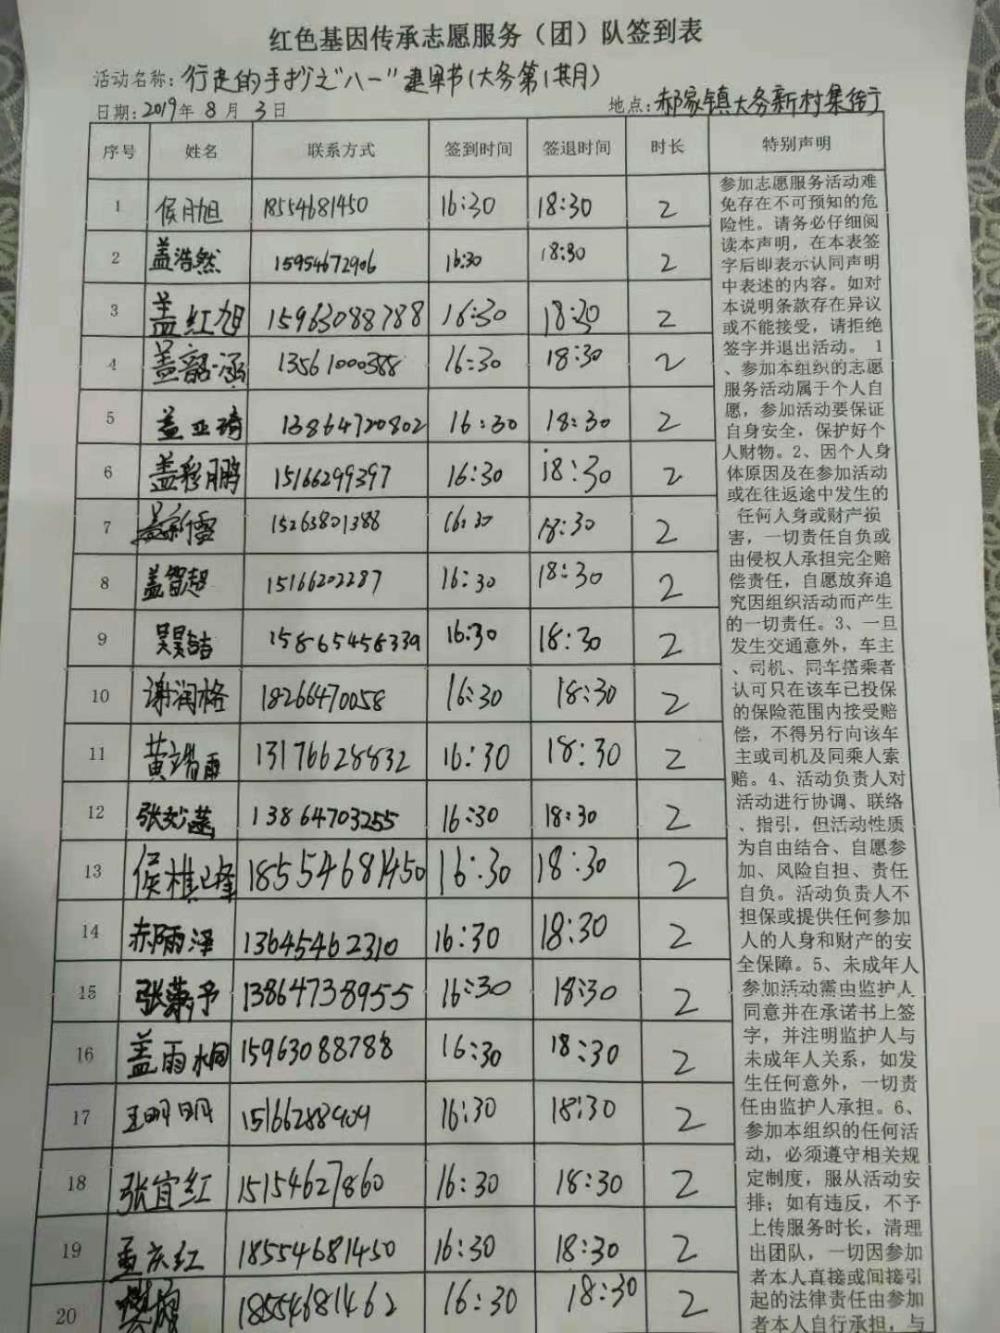 红色基因传承志愿服务（团）队签到表
活动名称：行走的手抄之"八一"建军节（大务第1共月）
日期：2019年8月3日 地点：郝家镇大务新村集
序号 姓名 联系方式 签到时间 签退时间 时长 特别声明
1 侯月旭 18554681450 16:30 18:30 2
2 盖浩然 15954672906 16:30 18:30 2
3 盖红旭 15963088788 16:30 18:30 2
4 盖韶涵 13561000388 16:30 18:30 2
5 盖亚琦 13864720802 16:30 18:30 2
6 盖彩鹏 15166299397 16:30 18:30 2
7 15263801388 16:30 18:30 2
8 盖智超 15166202287 16:30 18:30 2
9 15865458339 16:30 18:30 2
10 谢润格 18266470058 16:30 18:30 2
11 黄靖雨 13176628832 16:30 18:30 2
12 张妙菡 13864703255 16:30 18:30 2
13 侯 18554681450 16:30 18:30 2
14 赤雨泽 13645462310 16:30 18:30 2
15 张 予 13864738955 16:30 18:30 2
16 盖雨桐 15963088788 16:30 18:30 2
17 王明明 15166288909 16:30 18:30 2
18 张宜红 15154627860 16:30 18:30 2
19 孟庆红 18554681450 16:30 18:30 2
20 18554681462 16:30 18:30 2
参加志愿服务活动难
免存在不可预知的危
险性。请务必仔细阅
读本声明，在本表签
字后即表示认同声明
中表述的内容。如对
本说明条款存在异议
或不能接受，请拒绝
签字并退出活动。 1
、参加本组织的志愿
服务活动属于个人自
愿，参加活动要保证
自身安全，保护好个
人财物。2、因个人身
体原因及在参加活动
或在往返途中发生的
任何人身或财产损
害，一切责任自负或
由侵权人承担完全赔
偿责任，自愿放弃追
究因组织活动而产生
的一切责任。3、一旦
发生交通意外，车主
、司机、同车搭乘者
认可只在该车已投保
的保险范围内接受赔
偿，不得另行向该车
主或司机及同乘人索
赔。4、活动负责人对
活动进行协调、联络
、指引，但活动性质
为自由结合、自愿参
加、风险自担、责任
自负。活动负责人不
担保或提供任何参加
人的人身和财产的安
全保障。5、未成年人
参加活动需由监护人
同意并在承诺书上签
字，并注明监护人与
未成年人关系，如发
生任何意外，一切责
任由监护人承担。6、
参加本组织的任何活
动，必须遵守相关规
定制度，服从活动安
排；如有违反，不予
上传服务时长，清理
出团队，一切因参加
者本人直接或间接引
起的法律责任由参加
者本人自行承担，与